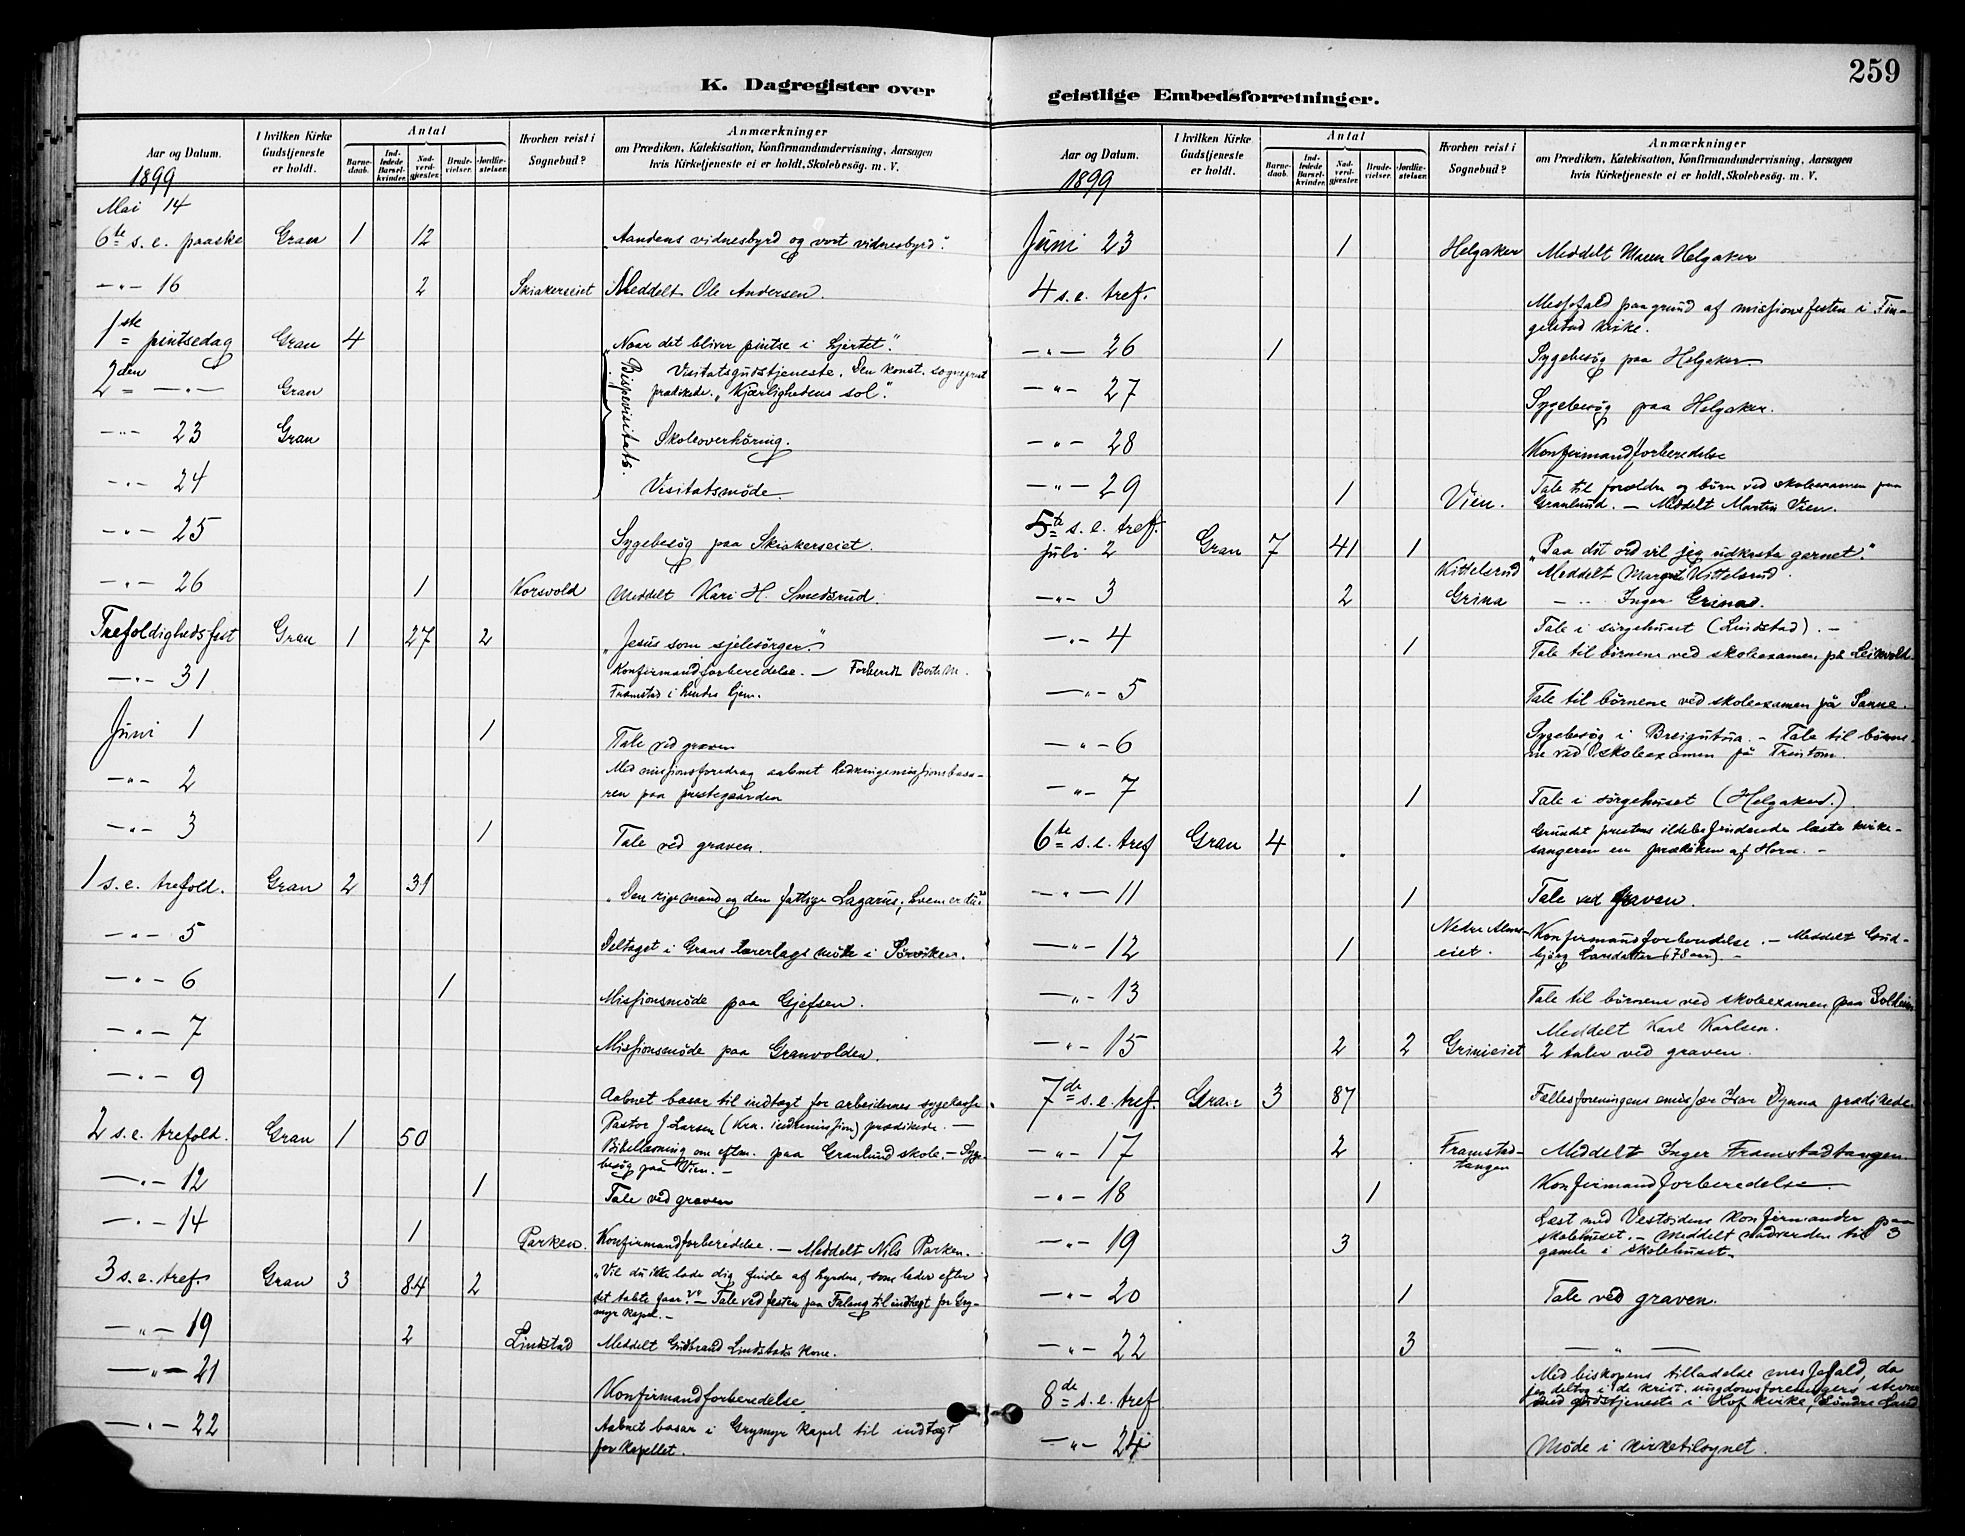 259
K. Dagregister over
geistlige Embedsforretninger.
Aar og Datum.
I hvilken Kirke Gudstjeneste er holdt.
Antal
Barnedaab.
Indledede Barselkvinder.
Nadverdgjester.
Brudevielser.
Jordfæstelser.
Hvorhen reist i Sognebud?
Anmærkninger
om Prædiken, Katekisation, Konfirmandundervisning, Aarsagen
hvis Kirketjeneste ei er holdt, Skolebesøg. m. V.
1899
Mai 14
6te s. e. paaske Gran 1 12 „Aandens vidnesbyrd og vort vidnesbyrd".
—„— 16 2 Skiakerseiet Meddelt Ole Andersen.
1ste pintsedag Gran 4 „Naar det bliver pintse i hjertet".
2den —„— Gran Visitatsgudstjeneste. Den konst. sogneprest
prædikede. „Kjærlighedens sol".
Bispevisitats.
—„— 23 Gran Skoleoverhøring.
—„— 24 Visitatsmøde.
—„— 25 Sygebesøg paa Skiakerseiet.
—„— 26 1 Korsvold Meddelt Kari H. Smedsrud.
Trefoldighedsfest Gran 1 27 2 „Jesus som sjelesørger".
—„— 31 Konfirmandforberedelse. — Forberedt Berte M.
Framstad i hendes hjem.
Juni 1 1 Tale ved graven
—„— 2 Med missionsforedrag aabnet hedningemissionsbasa-
ren paa prestegaarden
—„— 3 1 Tale ved graven.
1 s. e. trefold. Gran 2 31 „Den rige mand og den fattige Lazarus; hvem er du"
—„— 5 Deltaget i Grans lærerlags møte i Sørviken.
—„— 6 1 Missionsmøde paa Gjefsen.
—„— 7 Missionsmøde paa Granvolden.
—„— 9 Aabnet basar til indtægt for arbeidernes sygekasse.
2 s. e. trefold. Gran 1 50 Pastor J Larsen (Kra. indremission) prædikede. —
Bibellæsning om eftm. paa Granlund skole. — Syge-
besøg paa Vien. —
—„— 12 1 Tale ved graven
—„— 14 1 Parken. Konfirmandforberedelse. — Meddelt Nils Parken.
3 s. e. tref. Gran 3 84 2 „Vil du ikke lade dig finde af hyrden, som leder efter
det tabte faar?" — Tale ved festen paa Falang til indtægt for Gry-
myr kapel. —
—„— 19 2 Lindstad Meddelt Gudbrand Lindstads kone.
—„— 21 Konfirmandforberedelse
—„— 22 Aabnet basar i Grymyr kapel til indtægt
for kapellet.
Aar og Datum.
I hvilken Kirke Gudstjeneste er holdt.
Antal
Barnedaab.
Indledede Barselkvinder.
Nadverdgjester.
Brudevielser.
Jordfæstelser.
Hvorhen reist i Sognebud?
Anmærkninger
om Prædiken, Katekisation, Konfirmandundervisning, Aarsagen
hvis Kirketjeneste ei er holdt, Skolebesøg. m. V.
1899
Juni 23 1 Helgaker Meddelt Maren Helgaker
4 s. e. tref. Messefald paa grund af missionsfesten i Tin-
gelstad kirke.
—„— 26 1 Sygebesøg paa Helgaker.
—„— 27 Sygebesøg paa Helgaker.
—„— 28 Konfirmandforberedelse
—„— 29 1 Vien. Tale til forældre og børn ved skoleexamen paa
Granlund. — Meddelt Martin Vien.
5te s. e. tref.
Juli 2 Gran 7 41 1 „Paa dit ord vil jeg udkaste garnet".
Kittelsrud Meddelt Margit Kittelsrud.
—„— 3 2 Grina —„— Inger Grina.
—„— 4 1 Tale i sørgehuset (Lindstad). —
Tale til børnene ved skoleexamen på Leikvold.
—„— 5 Tale til børnene ved skoleexamen på Sanne.
—„— 6 Sygebesøg i Breigutua. — Tale til børne-
ne ved skoleexamen på Trintom.
—„— 7 1 Tale i sørgehuset (Helgaker).
6te s. e. tref Gran 4 Grundet prestens ildebefindende læste kirke-
sangeren en prædiken af Horn. —
—„— 11 1 Tale ved graven.
—„— 12 1 Nedre Alms-
eiet. Konfirmandforberedelse. — Meddelt Gud-
bjørg Larsdatter (78 aar). —
—„— 13 Tale til børnene ved skoleexamen paa Solheim
—„— 15 2 2 Grinieiet Meddelt Karl Karlsen.
2 taler ved graven.
7de s. e. tref. Gran 3 87 Fællesforeningens emissær Iver Dynna prædikede.
—„— 17 2 Framstad-
tangen Meddelt Inger Framstadtangen
—„— 18 1 Konfirmandforberedelse
—„— 19 3 Læst med Vestsidens konfirmander paa
skolehuset. — Meddelt nadverden til 3
gamle i skolehuset.
—„— 20 1 Tale ved graven.
—„— 22 3 — „ —
8de s. e. tref Med biskopens tilladelse messefald, da
jeg deltog i de krist. ungdomsforeningers stevne
med gudstjeneste i Hof kirke, Søndre Land
—„— 24 Møde i kirketilsynet.